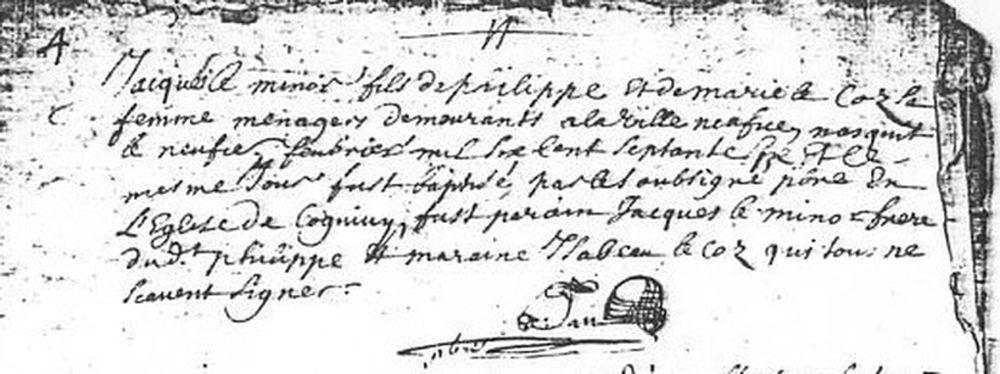 4
Jacques le minor fils de philippe Et de marie le Coz sa
femme menagers demourants a la Ville neufve, nasquit
le neufie feubvrier mil six cent septante six Et le
mesme Jour fust baptisé, par le soubsigné pbre En
L'Eglise de Cogniuy, fust parain Jacques le minor frere
dud.t philippe Et maraine Isabeau le Coz qui tous ne
scavent signer